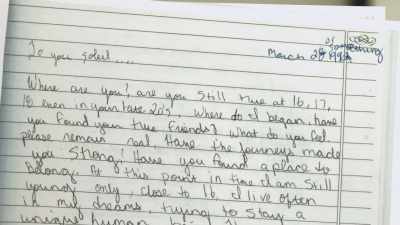 of something
March 28 199
To you soleil....
Where are you? are you still true at 16, 17,
18 even in your late 20's. Where do I began, have
you found your true friends? What do you feel
please remain real. Have the journeys made
you strong? Have you found a place to
belong. At this point in time I am still
young, only, close to 16. I live often
in my dreams, trying to stay a
unique human